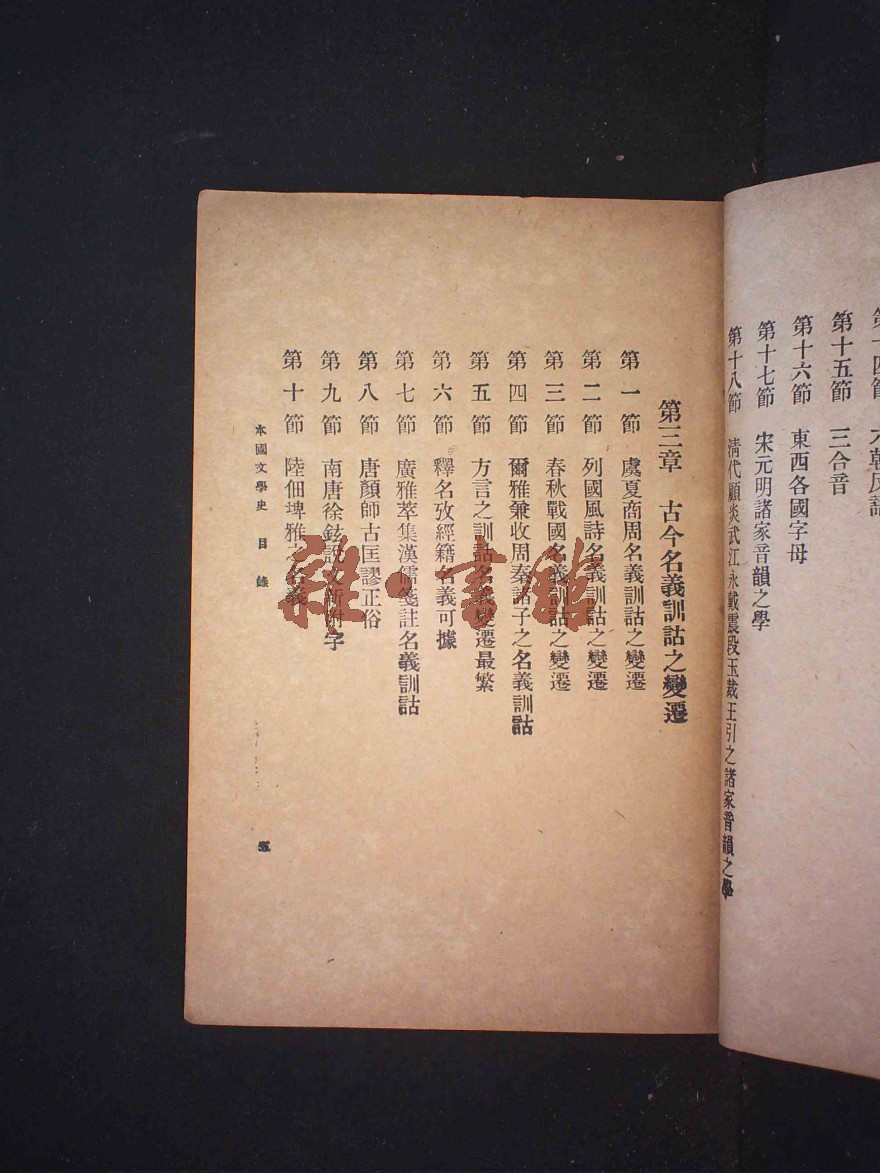 第十五節　三合音
第十六節　東西各國字母
第十七節　宋元明諸家音韻之學
第十八節　清代顧炎武江永戴震段玉裁王引之諸家音韻之學
第三章　古今名義訓詁之變遷
第一節　虞夏商周名義訓詁之變遷
第二節　列國風詩名義訓詁之變遷
第三節　春秋戰國名義訓詁之變遷
第四節　爾雅兼收周秦諸子之名義訓詁
第五節　方言之訓詁名義變遷最繁
第六節　釋名攷經籍名義可據
第七節　廣雅萃集漢儒箋註名義訓詁
第八節　唐顏師古匡謬正俗
第九節　南唐徐鉉說文新附字
第十節　陸佃埤雅之名義
本國文學史　目錄
五
雜·書館